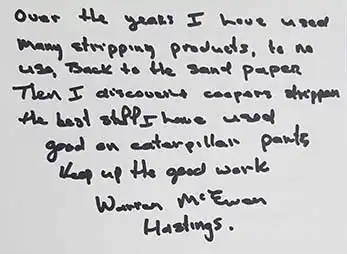 Over the years I have used
many stripping products, to no
use. Back to the sand paper
Then I discovert coopers strippen
the best stuff I have used
good on caterpillar pants
Keep up the good work
Warren McEwan
Hastings.